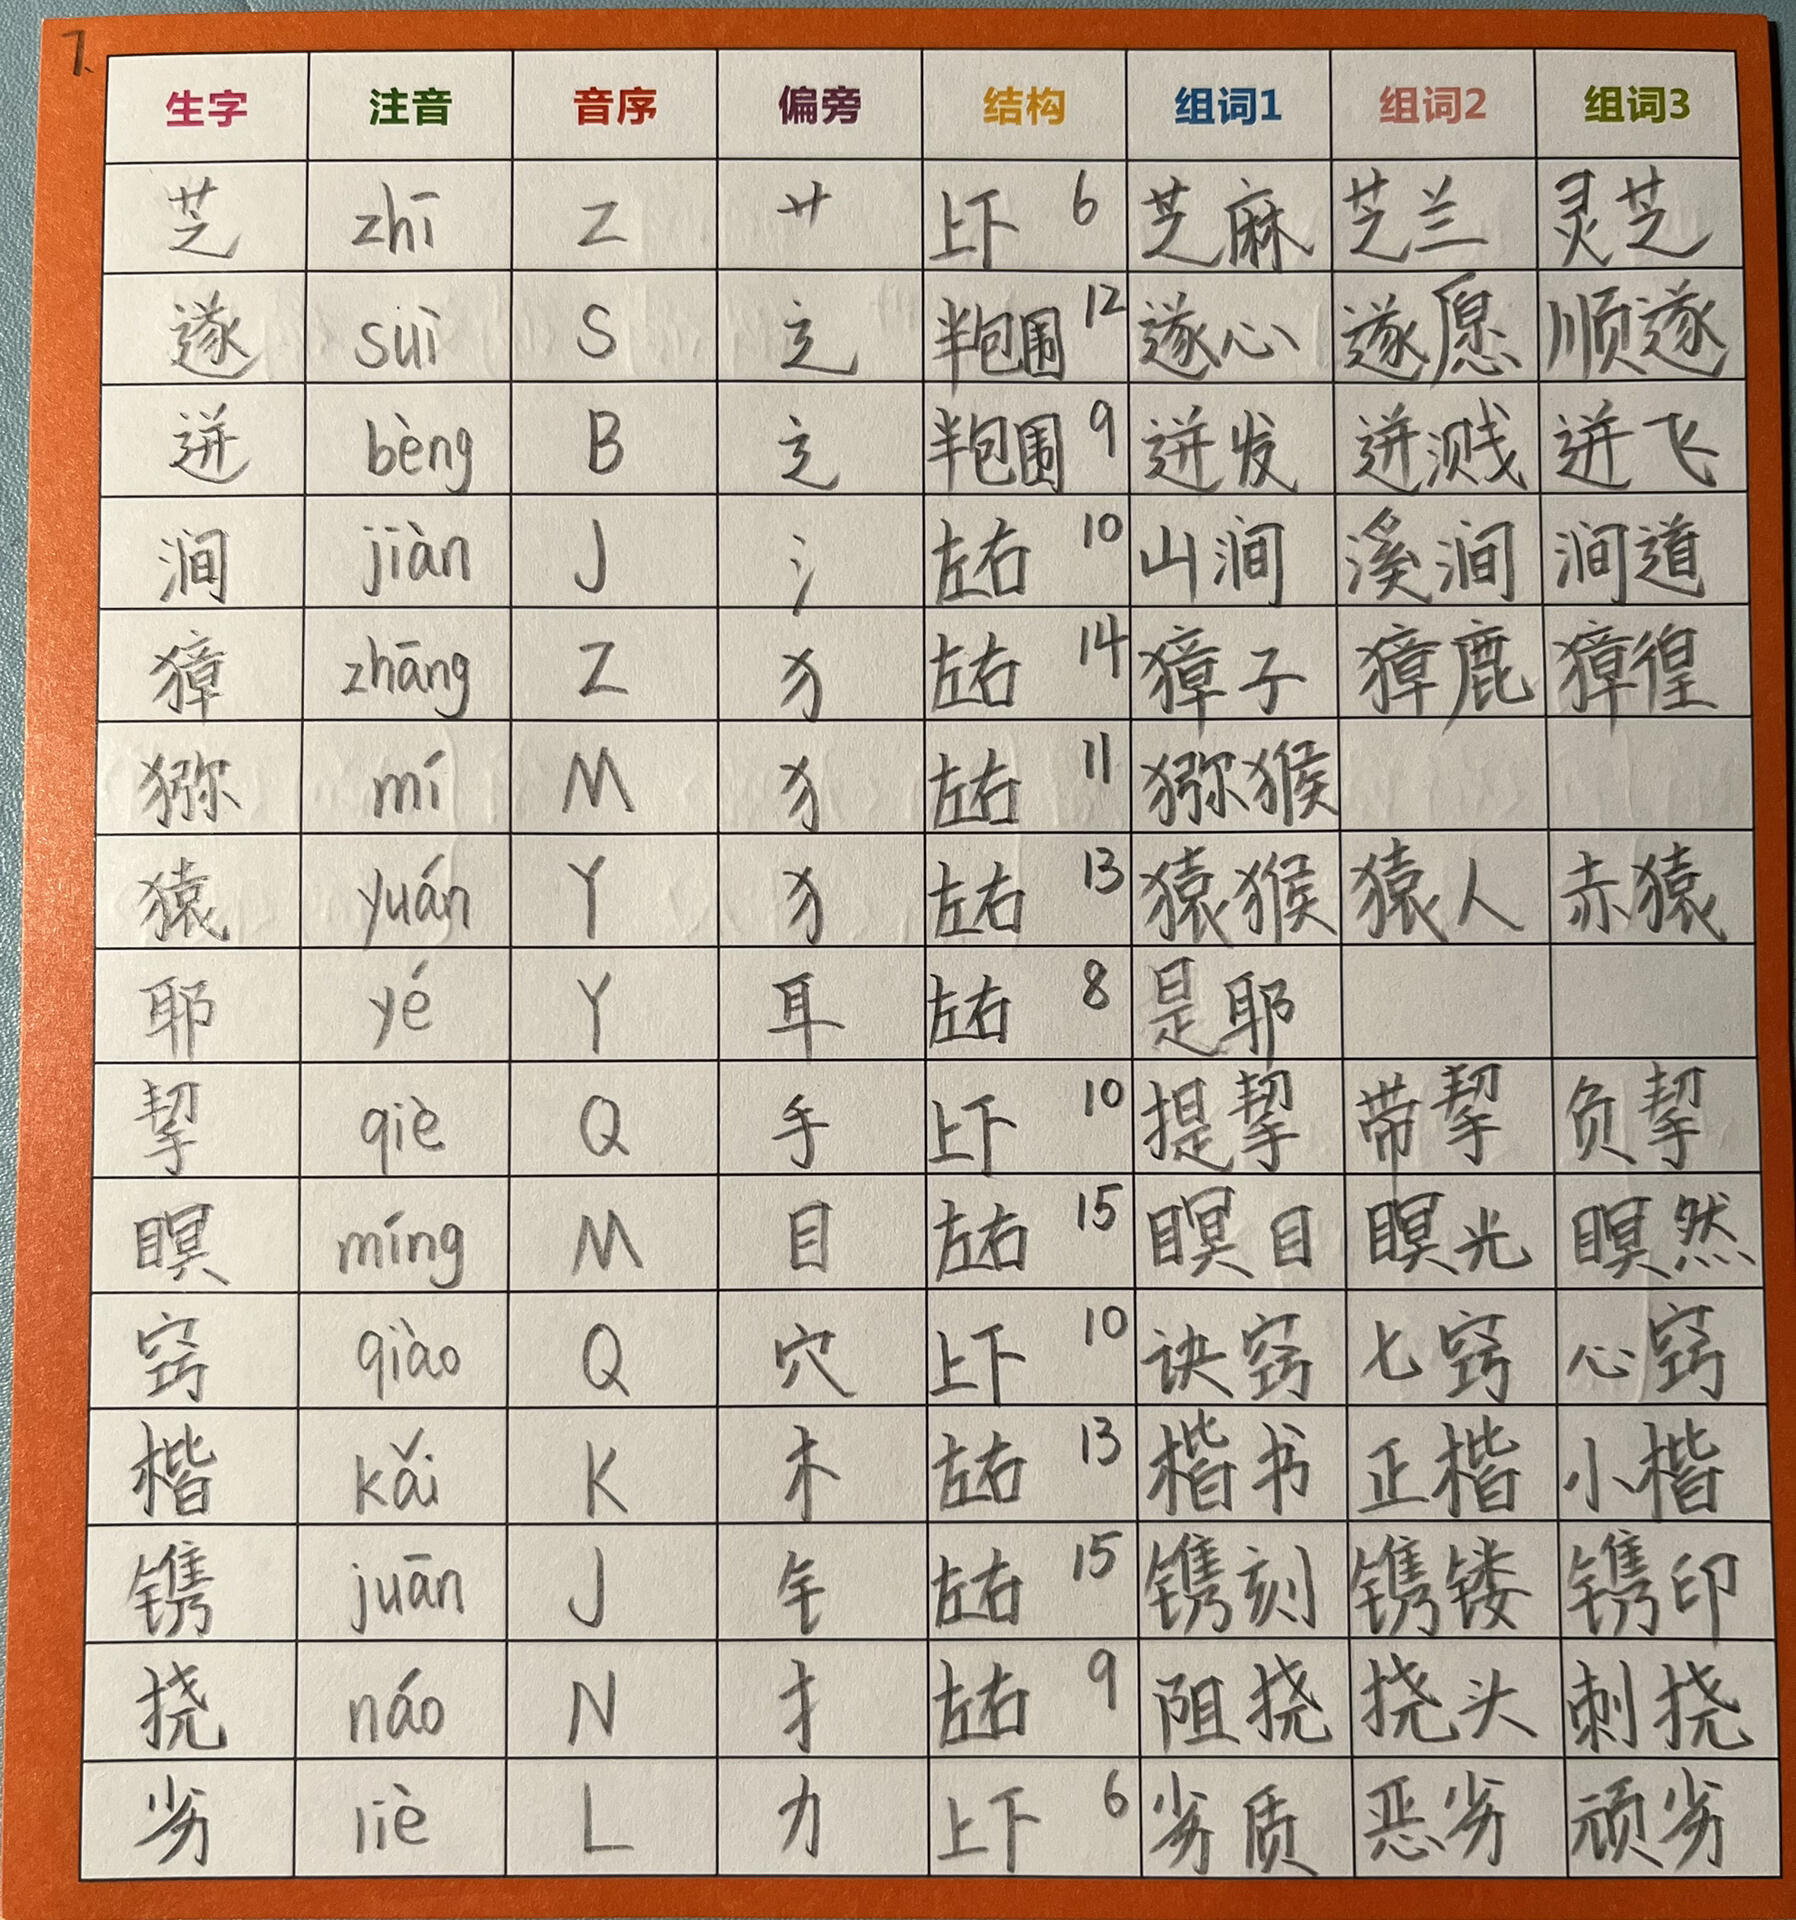 1.
生字 注音 音序 偏旁 结构 组词1 组词2 组词3
芝 zhī Z 艹 上下 6 芝麻 芝兰 灵芝
遂 suì S 辶 半包围 12 遂心 遂愿 顺遂
迸 bèng B 辶 半包围 9 迸发 迸溅 迸飞
涧 jiàn J 氵 左右 10 山涧 溪涧 涧道
獐 zhāng Z 犭 左右 14 獐子 獐鹿 獐徨
猕 mí M 犭 左右 11 猕猴
猿 yuán Y 犭 左右 13 猿猴 猿人 赤猿
耶 yé Y 耳 左右 8 是耶
挈 qiè Q 手 上下 10 提挈 带挈 负挈
瞑 míng M 目 左右 15 瞑目 瞑光 瞑然
窍 qiào Q 穴 上下 10 诀窍 七窍 心窍
楷 kǎi K 木 左右 13 楷书 正楷 小楷
镌 juān J 钅 左右 15 镌刻 镌镂 镌印
挠 náo N 扌 左右 9 阻挠 挠头 刺挠
劣 liè L 力 上下 6 劣质 恶劣 顽劣